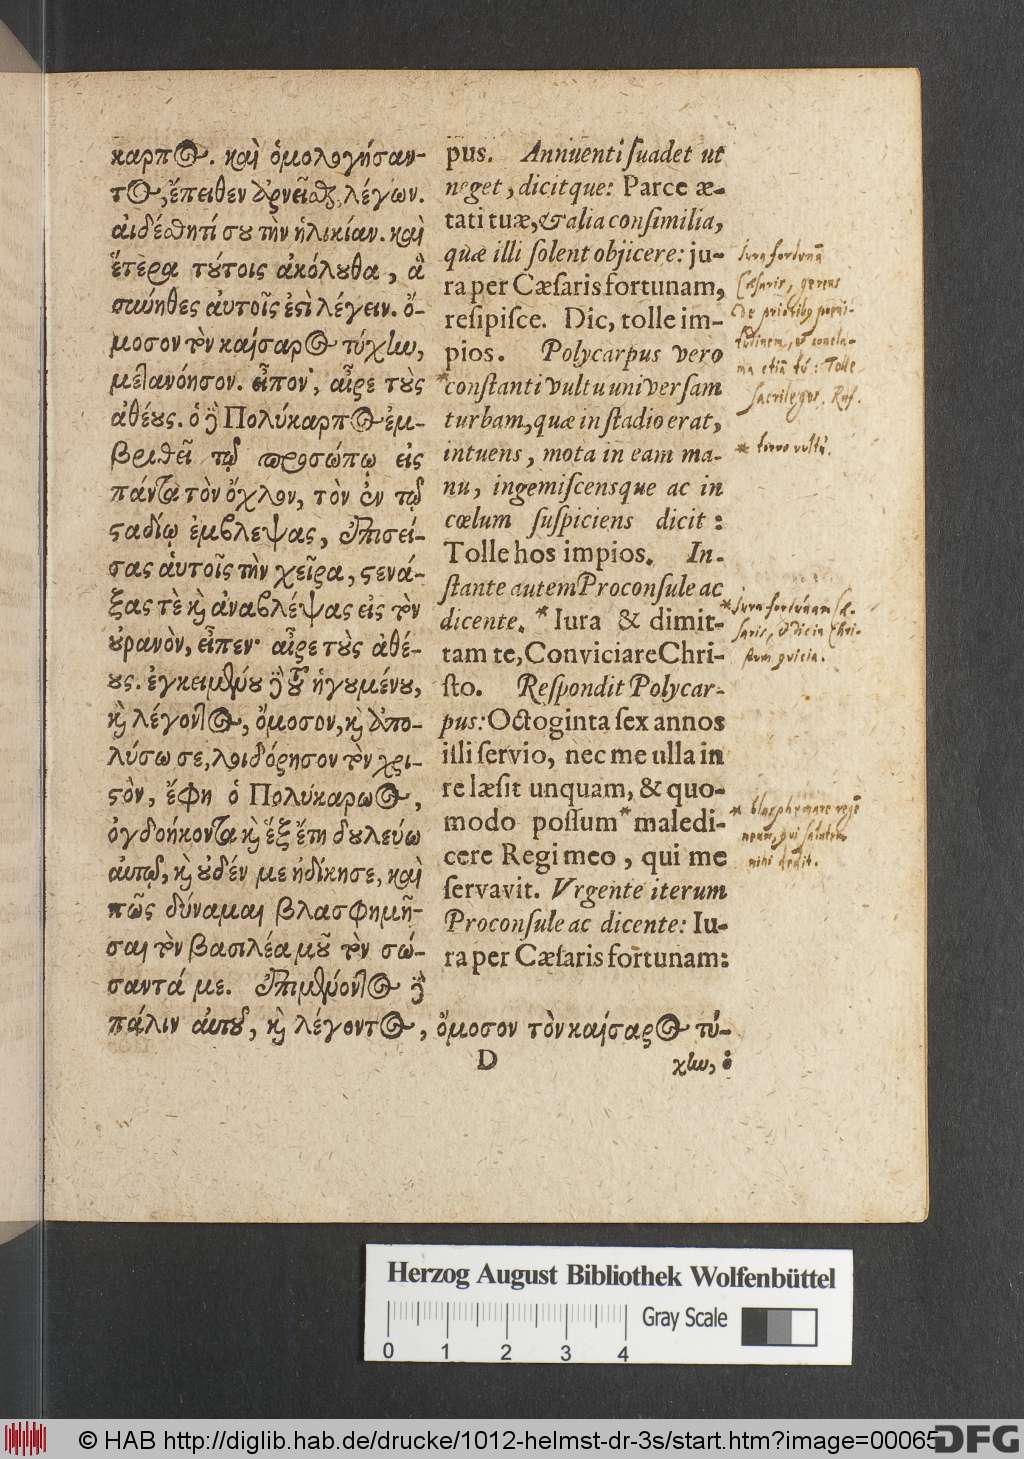 καρπος. καὶ ὁμολογήσαν-
τος, ἔπειθεν ἀρνεῖσθαι, λέγων.
αἰδέσθητί σου τὴν ἡλικίαν. καὶ
ἕτερα τούτοις ἀκόλουθα, ἃ
συνήθες αὐτοῖς ἐστὶ λέγειν. ὄ-
μοσον τὸν καίσαρος τύχην,
μετανόησον. εἶπον, αἶρε τοὺς
ἀθέους. ὁ δὲ Πολύκαρπος ἐμ-
βριθεῖ τῷ προσώπῳ εἰς
πάντα τὸν ὄχλον, τὸν ἐν τῷ
σταδίῳ ἐμβλεψας, ἐπισεί-
σας αὐτοῖς τὴν χεῖρα, στενά-
ξας τὲ καὶ ἀναβλέψας εἰς τὸν
οὐρανὸν, εἶπεν· αἶρε τοὺς ἀθέ-
ους. ἐγκειμένου δὲ τοῦ ἡγουμένου,
καὶ λέγοντος, ὄμοσον, καὶ ἀπο-
λύσω σε, λοιδόρησον τὸν χρι-
στὸν, ἔφη ὁ Πολύκαρπος,
ὀγδοήκοντα καὶ ἓξ ἔτη δουλεύω
αὐτῷ, καὶ οὐδέν με ἠδίκησε, καὶ
πῶς δύναμαι βλασφημῆ-
σαι τὸν βασιλέα μοῦ τὸν σώ-
σαντά με. ἐπιμένοντος δὲ
πάλιν αὐτοῦ, καὶ λέγοντος, ὄμοσον τὸν καίσαρος τύ-
pus. Annuenti suadet ut
neget, dicitque: Parce æ-
tati tuæ, & alia consimilia,
quæ illi solent objicere: ju-
ra per Cæsaris fortunam,
resipisce. Dic, tolle im-
pios. Polycarpus vero
*constanti vultu universam
turbam, quæ in stadio erat,
intuens, mota in eam ma-
nu, ingemiscensque ac in
cœlum suspiciens dicit:
Tolle hos impios. In-
stante autem Proconsule ac
dicente. * Iura & dimit-
tam te, Conviciare Chri-
sto. Respondit Polycar-
pus: Octoginta sex annos
illi servio, nec me ulla in
re læsit unquam, & quo-
modo possum * maledi-
cere Regi meo, qui me
servavit. Vrgente iterum
Proconsule ac dicente: Iu-
ra per Cæsaris fortunam:
D
χην, ὁ
Jura fortunã
Cæsaris, gerens
de prioribus poeni-
tudinem, et concla-
ma etiã tu: Tolle
sacrilegos. Ruf.
* torvo vultu.
* Jura fortunam Cæ-
saris, & dicia Chri-
stum
* blasphemare regẽ
meum, qui salutem
mihi dedit.
Herzog August Bibliothek Wolfenbüttel
Gray Scale
0 1 2 3 4
© HAB http://diglib.hab.de/drucke/1012-helmst-dr-3s/start.htm?image=00065
DFG